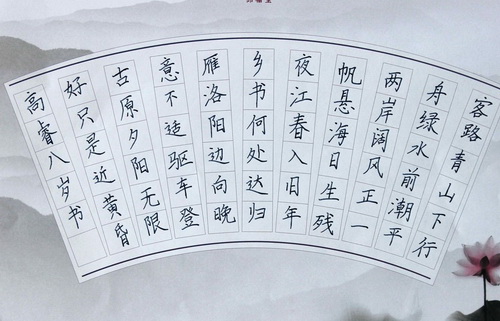 客路青山下行
舟绿水前潮平
两岸阔风正一
帆悬海日生残
夜江春入旧年
乡书何处达归
雁洛阳边向晚
意不适驱车登
古原夕阳无限
好只是近黄昏
高睿八岁书